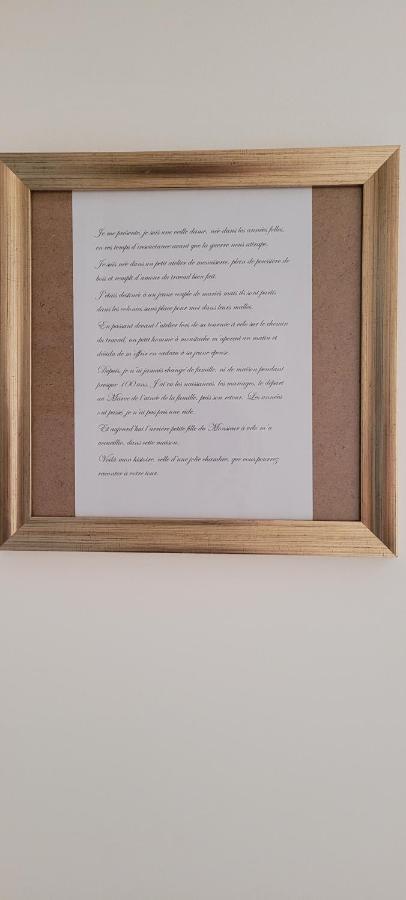 Je me présente, je suis une vieille dame, née dans les années folles,
en ces temps d'insouciance avant que la guerre nous attrape.
Je suis née dans un petit atelier de menuiserie, plein de poussière de
bois et rempli d'amour du travail bien fait.
J'étais destinée à un jeune couple de mariés mais ils sont partis
dans les colonies sans place pour moi dans leurs malles.
En passant devant l'atelier lors de sa tournée à vélo sur le chemin
du travail, un petit homme à moustache m'aperçut un matin et
décida de m'offrir en cadeau à sa jeune épouse.
Depuis, je n'ai jamais changé de famille, ni de maison pendant
presque 100 ans. J'ai vu les naissances, les mariages, le départ
au Maroc de l'aînée de la famille, puis son retour. Les années
ont passé, je n'ai pas pris une ride.
Et aujourd'hui l'arrière petite fille du Monsieur à vélo m'a
accueillie, dans cette maison.
Voilà mon histoire, celle d'une jolie chambre, que vous pourrez
raconter à votre tour.